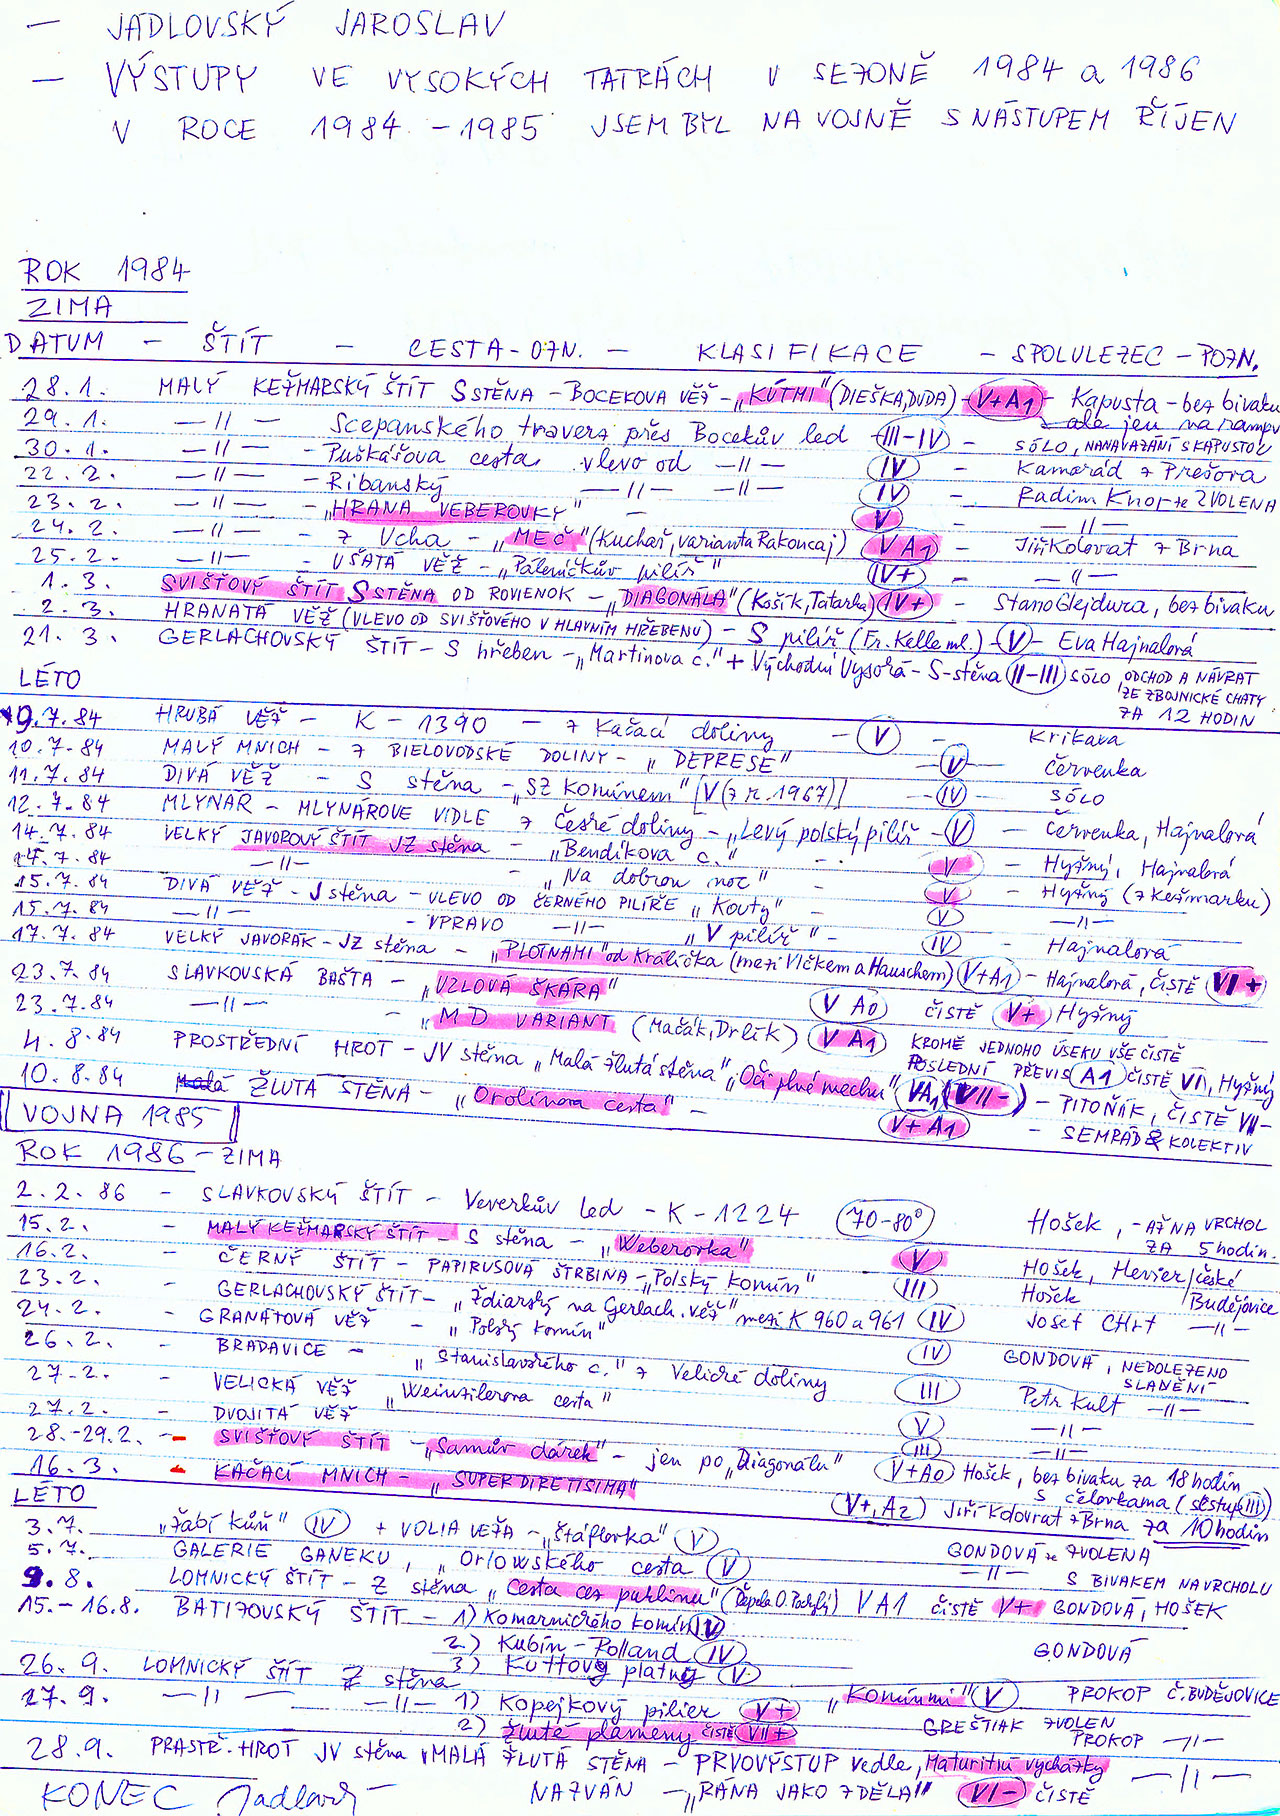 — JADLOVSKÝ JAROSLAV
— VÝSTUPY VE VYSOKÝCH TATRÁCH V SEZONĚ 1984 a 1986
V ROCE 1984 - 1985 JSEM BYL NA VOJNĚ S NÁSTUPEM ŘÍJEN
ROK 1984
ZIMA
DATUM - ŠTÍT - CESTA - OZN. - KLASIFIKACE - SPOLULEZEC - POZN.
28.1. MALÝ KEŽMARSKÝ ŠTÍT S STĚNA - BOCEKOVA VĚŽ - „KÚTMI" (DIEŠKA, DUDA) - V+A1 - Kapusta - bez bivaku
ale jen na rampu
29.1. —II— Scepanského travers přes Bocekův led III-IV - SÓLO, NANAVAZÁNÍ S KAPUSTOU
30.1. —II— - Puškášova cesta vlevo od —II— IV - Kamarád z Prešova
22.2. —II— - Ribanský —II— —II— IV - Radim Knor ze ZVOLENA
23.2. —II— - „HRANA VEBEROVKY" - V —II—
24.2. —II— - z Ucha - „MEČ" (Kuchař, varianta Rakoncaj) V A1 - Jiří Kolovrat z Brna
25.2. —II— - UŠATÁ VĚŽ - „Páleníčkův pilíř" IV+ - —II—
1.3. SVIŠŤOVÝ ŠTÍT S STĚNA OD ROVIENOK - „DIAGONÁLA" (Košík, Tatarka) IV+ - Stano Glejdura, bez bivaku
2.3. HRANATÁ VĚŽ (VLEVO OD SVIŠŤOVÉHO V HLAVNÍM HŘEBENU) - S pilíř (Fr. Kelle ml.) - V - Eva Hajnalová
21.3. GERLACHOVSKÝ ŠTÍT - S hřeben - „Martinova c." + Východní Vysoká - S-stěna II-III SÓLO, ODCHOD A NÁVRAT
ZE ZBOJNICKÉ CHATY
ZA 12 HODIN
LÉTO
9.7.84 HRUBÁ VĚŽ - K - 1390 - z Kačací doliny - V - Krikava
10.7.84 MALÝ MNICH - z BIELOVODSKÉ DOLINY - „DEPRESE" - V - Červenka
11.7.84 DIVÁ VĚŽ - S stěna - „SZ Komínem" [V (z r. 1967)] - IV - SÓLO
12.7.84 MLYNÁŘ - MLYNÁROVE VIDLE z České doliny - „Levý polský pilíř - V - Červenka, Hajnalová
14.7.84 VELKÝ JAVOROVÝ ŠTÍT JZ stěna - „Bendíkova c." - V - Hyžný, Hajnalová
14.7.84 —II— - „Na dobrou noc" - V - Hyžný (z Kežmarku)
15.7.84 DIVÁ VĚŽ - J stěna - VLEVO OD ČERNÉHO PILÍŘE „Kouty" - V —II—
15.7.84 —II— - VPRAVO —II— „V pilíř" - IV - Hajnalová
17.7.84 VELKÝ JAVORÁK - JZ stěna - „PLOTNAMI" od Králíčka (mezi Vlčkem a Hauschem) V+A1 - Hajnalová, ČISTĚ VI+
23.7.84 SLAVKOVSKÁ BAŠTA - „UZLOVÁ ŠKÁRA" V A0 ČISTĚ V+ Hyžný
23.7.84 —II— - „MD VARIANT (Mačák, Drlík) V A1 KROMĚ JEDNOHO ÚSEKU VŠE ČISTĚ
POSLEDNÍ PŘEVIS A1 ČISTĚ VI, Hyžný
4.8.84 PROSTŘEDNÍ HROT - JV stěna „Malá žlutá stěna" „Oči plné mechu" VA1 (VII-) - PITOŇÁK, ČISTĚ VII-
10.8.84 ŽLUTÁ STĚNA - „Orolinova cesta" - V+ A1 - SEMRÁD & KOLEKTIV
VOJNA 1985
ROK 1986 - ZIMA
2.2.86 - SLAVKOVSKÝ ŠTÍT - Veverkův led - K - 1224 70-80° Hošek, - AŽ NA VRCHOL
ZA 5 hodin.
15.2. - MALÝ KEŽMARSKÝ ŠTÍT - S stěna - „Weberovka" V Hošek, Hevier/české
16.2. - ČERNÝ ŠTÍT - PAPIRUSOVÁ ŠTRBINA - „Polský komín" III Hošek /Budějovice
23.2. - GERLACHOVSKÝ ŠTÍT - „Ždiarský na Gerlach. věž" mezi K 960 a 961 IV Josef CHrt —II—
24.2. - GRANÁTOVÁ VĚŽ - „Polský komín" IV GONDOVÁ, NEDOLEZENO
SLANĚNÍ
26.2. - BRADAVICE - „Stanislavského c." z Velické doliny III Petr Kult —II—
27.2. - VELICKÁ VĚŽ „Weinzilerova cesta" V —II—
27.2. - DVOJITÁ VĚŽ III —II—
28.-29.2. - SVIŠŤOVÝ ŠTÍT - „Samův dárek" - jen po „Diagonálu" V+A0 Hošek, bez bivaku za 18 hodin
s čelovkama (sestup III)
16.3. - KAČACÍ MNICH - „SUPERDIRETISIMA" V+, A2 Jiří Kolovrat z Brna za 10 hodin
LÉTO
3.7. „Žabí kůň" IV + VOLIA VEŽA - „Štáflovka" V GONDOVÁ ze ZVOLENA
5.7. GALERIE GANEKU, „Orlowského cesta V —II—
S BIVAKEM NA VRCHOLU
9.8. LOMNICKÝ ŠTÍT - Z stěna „Cesta cez puklinu" VA1 ČISTĚ V+ GONDOVÁ, HOŠEK
15.-16.8. BATIZOVSKÝ ŠTÍT - 1) Komarnického komín IV
2) Kubín - Rolland IV GONDOVÁ
3) Kuttovy platny V
26.9. LOMNICKÝ ŠTÍT Z stěna „Komínmi" V PROKOP Č. BUDĚJOVICE
27.9. —II— —II— 1) Kopejkový pilier V+ GREŠTIAK ZVOLEN
2) Žluté plameny ČISTĚ VII+ PROKOP —II—
28.9. PRASTŘ. HROT JV stěna MALÁ ŽLUTÁ STĚNA - PRVOVÝSTUP vedle „Maturitní vycházky —II—
NAZVÁN - „RÁNA JAKO Z DĚLA" VI- ČISTĚ
KONEC Jadlovský